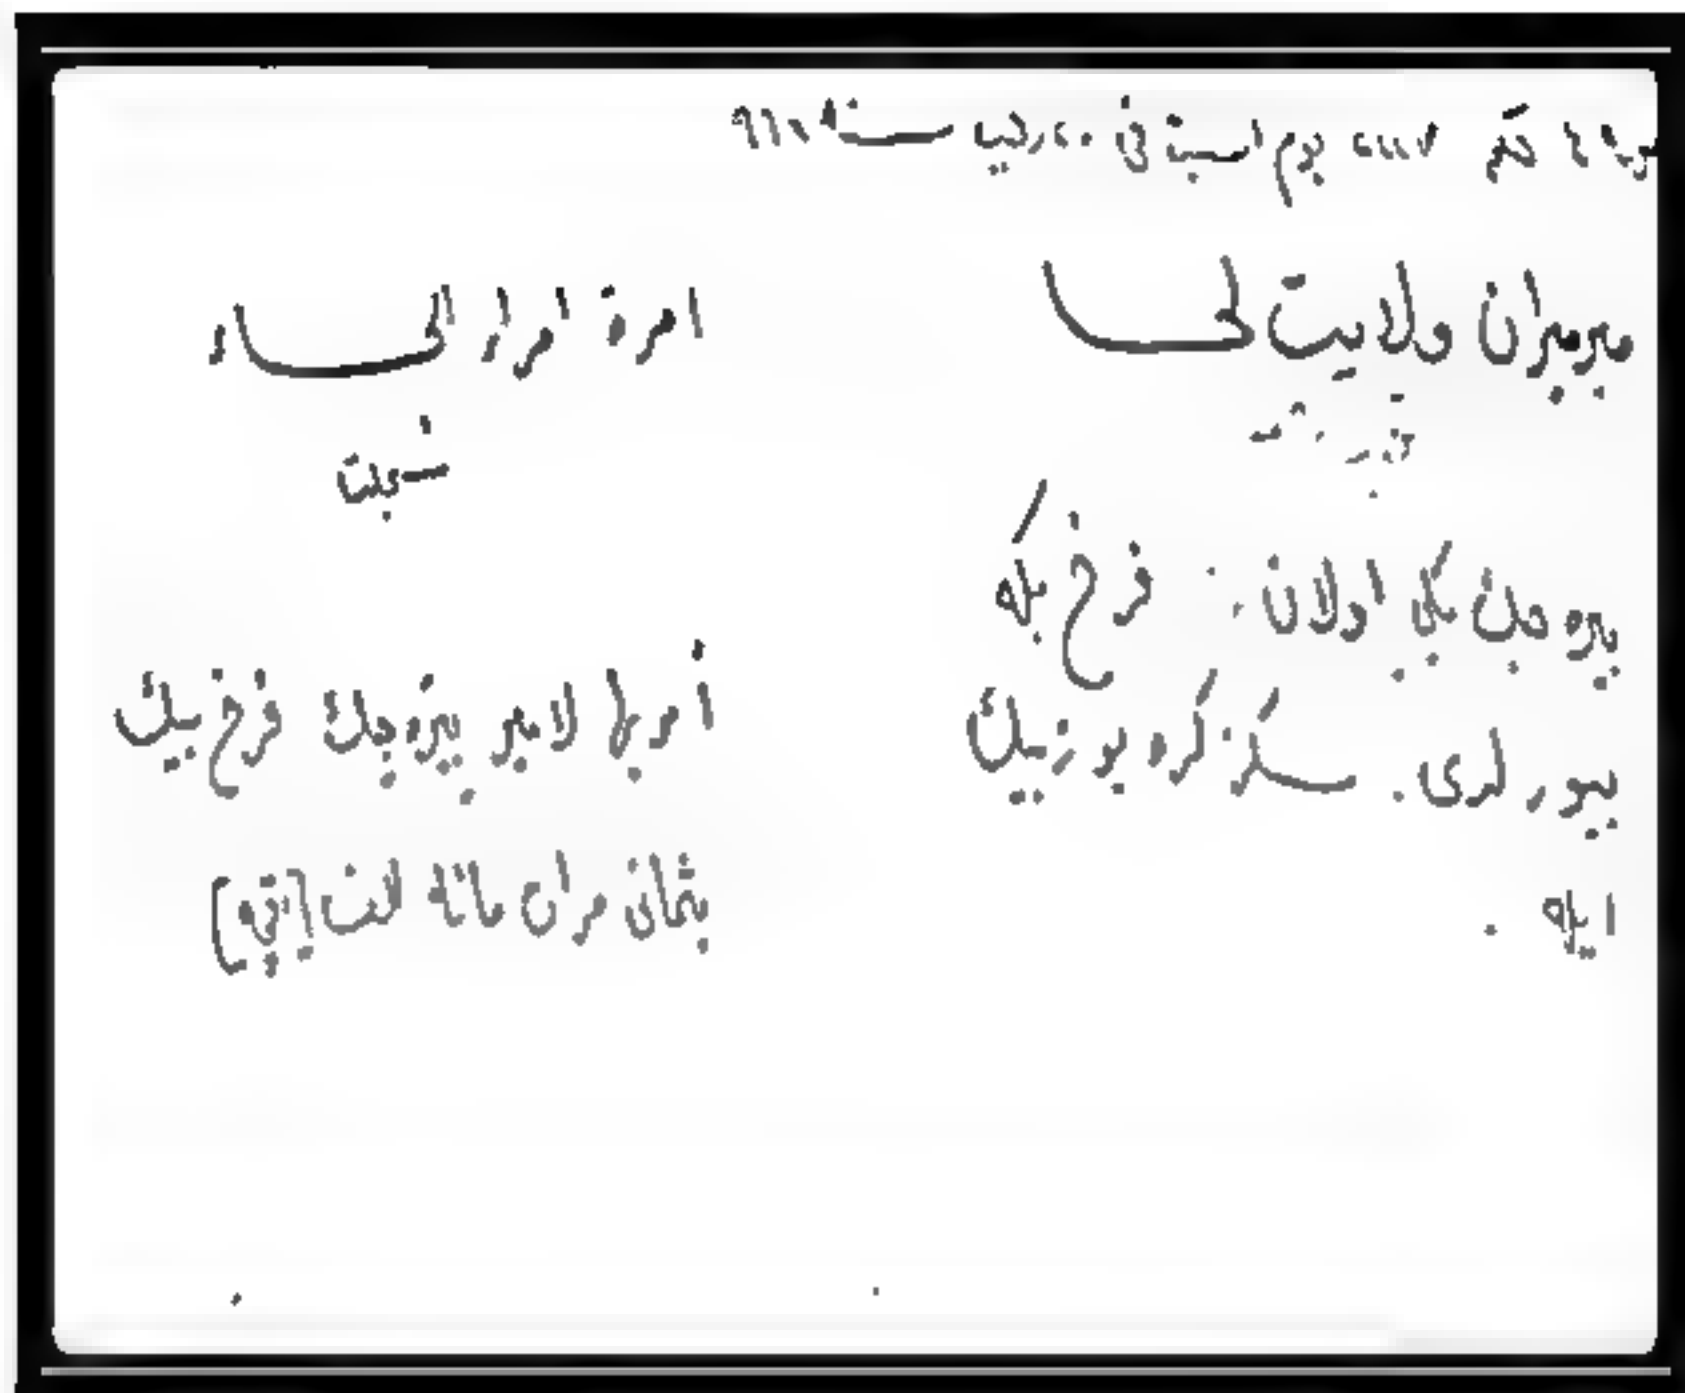 حكم ٢١١٧ يوم السبت فى ٢٠ رجب سنة ٩٦٧
ميرميران ولايت لحسا
پيره جك بكى اولان . فرخ بكه
بيورلدى . سكز كره يوز بيك
ايله .
امرة امراء الحساء
أمر بها لامير بيره جك فرخ بيك
بثمان مرات مائة الف [اقچه]